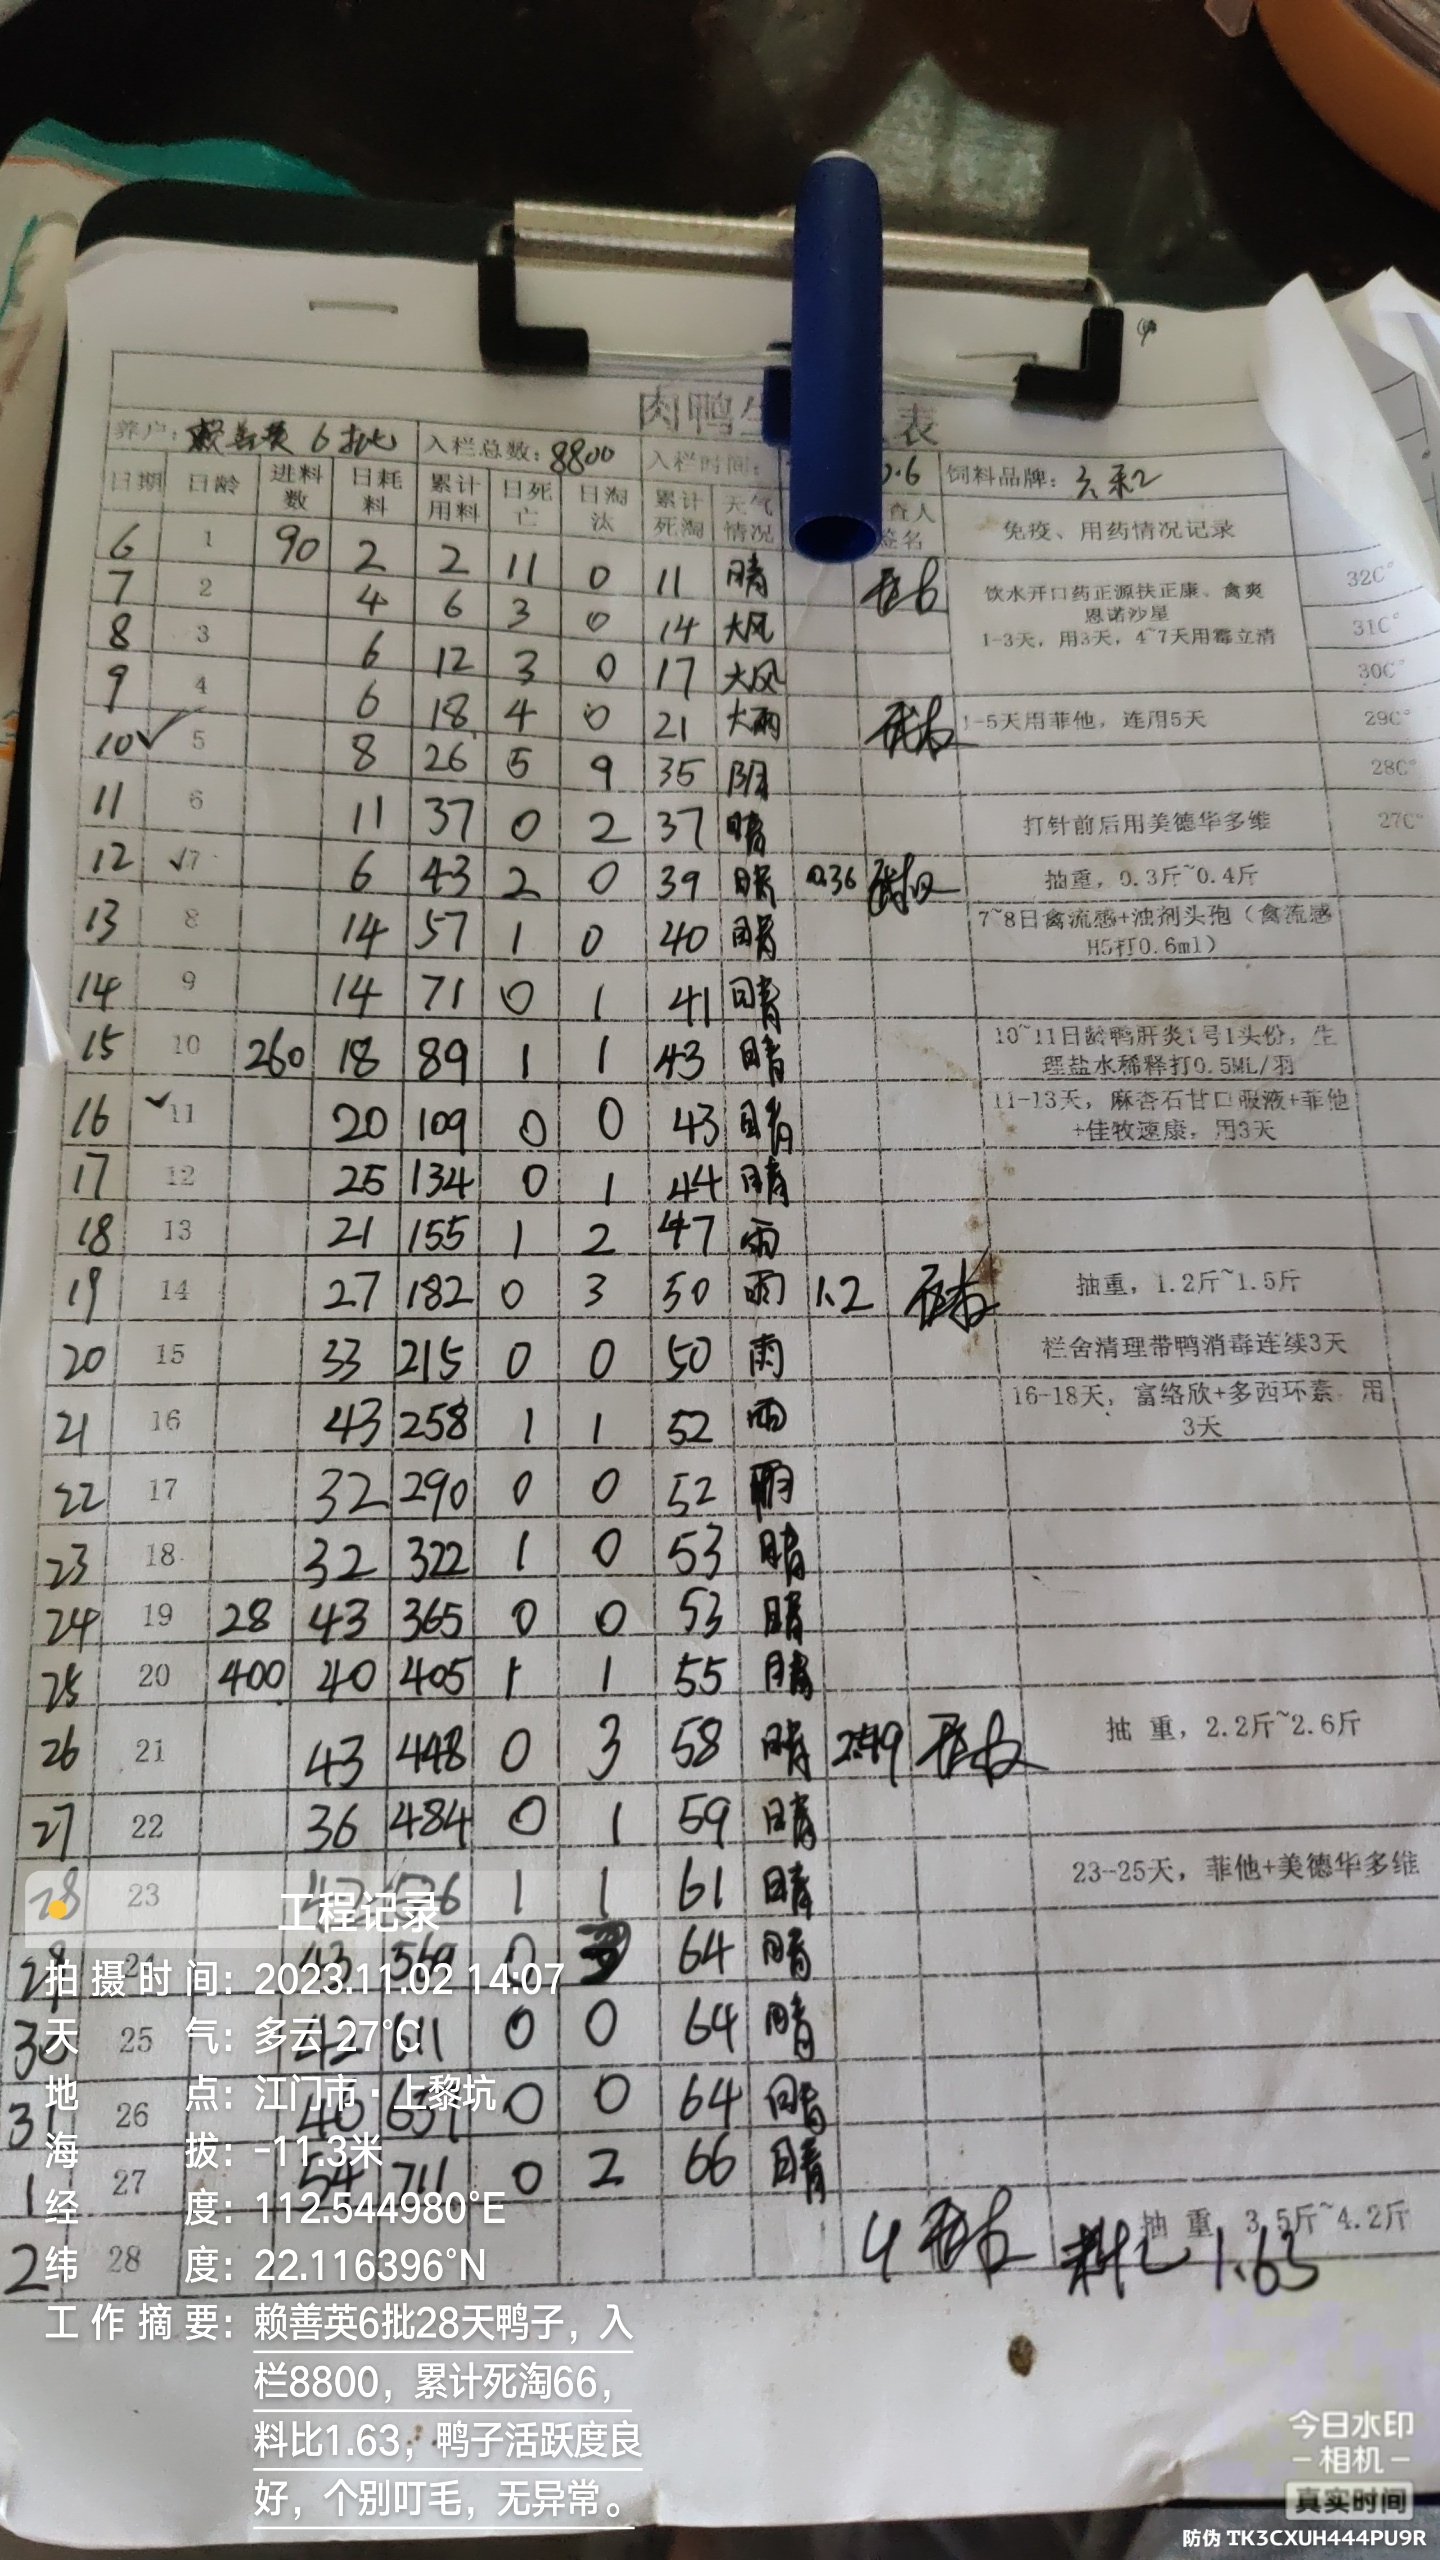 肉鸭生 表
养户：赖善英 6批 入栏总数：8800 入栏时间： 0.6 饲料品牌：
日期 日龄 进料数 日耗料 累计用料 日死亡 日淘汰 累计死淘 天气情况 查人签名 免疫、用药情况记录
6 1 90 2 2 11 0 11 晴 饮水开口药正源扶正康、禽爽 32C°
恩诺沙星
7 2 4 6 3 0 14 大风 1-3天，用3天，4~7天用霉立清 31C°
8 3 6 12 3 0 17 大风 30C°
9 4 6 18 4 0 21 大雨 1-5天用菲他，连用5天 29C°
10✓ 5 8 26 5 9 35 阴 28C°
11 6 11 37 0 2 37 晴 打针前后用美德华多维 27C°
12 ✓7 6 43 2 0 39 晴 0.36 抽重，0.3斤~0.4斤
13 8 14 57 1 0 40 晴 7~8日禽流感+浊剂头孢（禽流感
H5打0.6ml）
14 9 14 71 0 1 41 晴
15 10 260 18 89 1 1 43 晴 10~11日龄鸭肝炎1号1头份，生
理盐水稀释打0.5ML/羽
16 ✓11 20 109 0 0 43 晴 11-13天，麻杏石甘口服液+菲他
+佳牧速康，用3天
17 12 25 134 0 1 44 晴
18 13 21 155 1 2 47 雨
19 14 27 182 0 3 50 雨 1.2 抽重，1.2斤~1.5斤
20 15 33 215 0 0 50 雨 栏舍清理带鸭消毒连续3天
21 16 43 258 1 1 52 雨 16-18天，富络欣+多西环素 用
3天
22 17 32 290 0 0 52 阴
23 18 32 322 1 0 53 晴
24 19 28 43 365 0 0 53 晴
25 20 400 40 405 1 1 55 晴
26 21 43 448 0 3 58 晴 2.49 抽 重，2.2斤~2.6斤
27 22 36 484 0 1 59 晴
28 23 1 1 61 晴 23-25天，菲他+美德华多维
29 24 43 569 0 3 64 晴
30 25 42 611 0 0 64 晴
31 26 40 0 0 64 晴
1 27 54 711 0 2 66 晴
2 28 4 抽 重 3.5斤~4.2斤
料比 1.63
工程记录
拍摄时间：2023.11.02 14:07
天气：多云 27℃
地点：江门市·上黎坑
海拔：-11.3米
经度：112.544980°E
纬度：22.116396°N
工作摘要：赖善英6批28天鸭子，入
栏8800，累计死淘66，
料比1.63，鸭子活跃度良
好，个别叮毛，无异常。
今日水印
－相机－
真实时间
防伪 TK3CXUH444PU9R